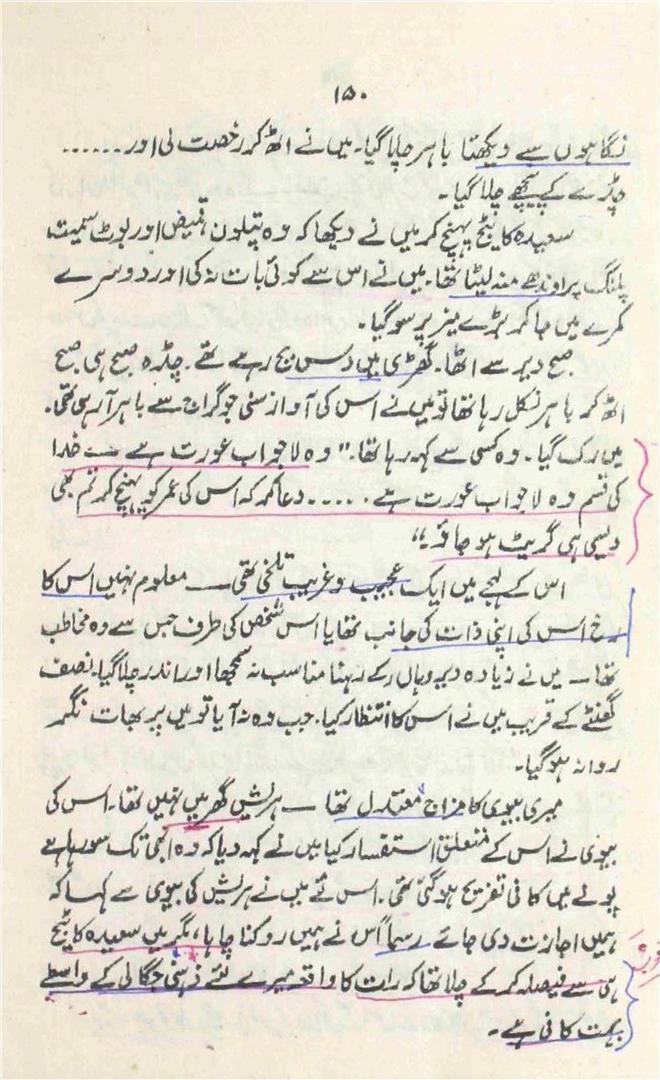 ۱۵۰
نگاہوں سے دیکھتا باہر چلا گیا۔ میں نے اٹھ کر رخصت لی اور ......
چڈے کے پیچھے چلا گیا۔
سعیدہ کاٹیج پہنچ کر میں نے دیکھا کہ وہ پتلون قمیض اور بوٹ سمیت
پلنگ پر اوندھے منہ لیٹا تھا۔ میں نے اس سے کوئی بات نہ کی اور دوسرے
کمرے میں جا کر بڑے میز پر سو گیا۔
صبح دیر سے اٹھا۔ گھڑی میں دس بج رہے تھے۔ چڈہ صبح ہی صبح
اٹھ کر باہر نکل رہا تھا تو میں نے اس کی آواز سنی جو گراج سے باہر آ رہی تھی۔
میں رک گیا۔ وہ کسی سے کہہ رہا تھا۔ "وہ لاجواب عورت ہے — خدا
کی قسم وہ لاجواب عورت ہے ..... دعا کر کہ اس کی عمر کو پہنچ کر تم بھی
ویسی ہی گریٹ ہو جاؤ۔"
اس کے لہجے میں ایک عجیب و غریب تلخی تھی — معلوم نہیں اس کا
رخ اس کی اپنی ذات کی جانب تھا یا اس شخص کی طرف جس سے وہ مخاطب
تھا — میں نے زیادہ دیر وہاں رکے رہنا مناسب نہ سمجھا اور اندر چلا گیا۔ نصف
گھنٹے کے قریب میں نے اس کا انتظار کیا۔ جب وہ نہ آیا تو میں پربھات نگر
روانہ ہو گیا۔
میری بیوی کا مزاج معتدل تھا — ہریش گھر میں نہیں تھا۔ اس کی
بیوی نے اس کے متعلق استفسار کیا میں نے کہہ دیا کہ وہ ابھی تک سو رہا ہے
پونے میں کافی تفریح ہو گئی تھی۔ اس لئے میں نے ہریش کی بیوی سے کہا کہ
ہمیں اجازت دی جائے رسماً اس نے ہمیں روکنا چاہا، مگر میں سعیدہ کاٹیج
ہی سے فیصلہ کر کے چلا تھا کہ رات کا واقعہ میرے لئے ذہنی جگالی کے واسطے
بہت کافی ہے۔